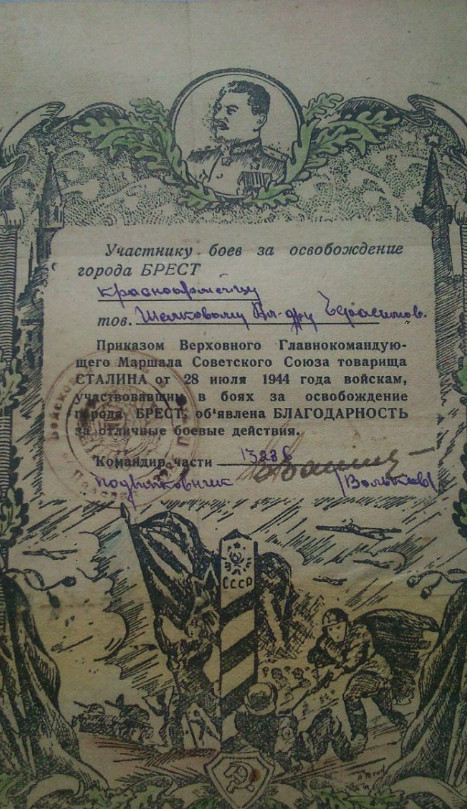 Участнику боев за освобождение
города БРЕСТ
красноармейцу
тов. Шелковому Ал-дру Герасимов.
Приказом Верховного Главнокомандую-
щего Маршала Советского Союза товарища
СТАЛИНА от 28 июля 1944 года войскам,
участвовавшим в боях за освобождение
города БРЕСТ, об‘явлена БЛАГОДАРНОСТЬ
за отличные боевые действия.
Командир части
подполковник
СССР